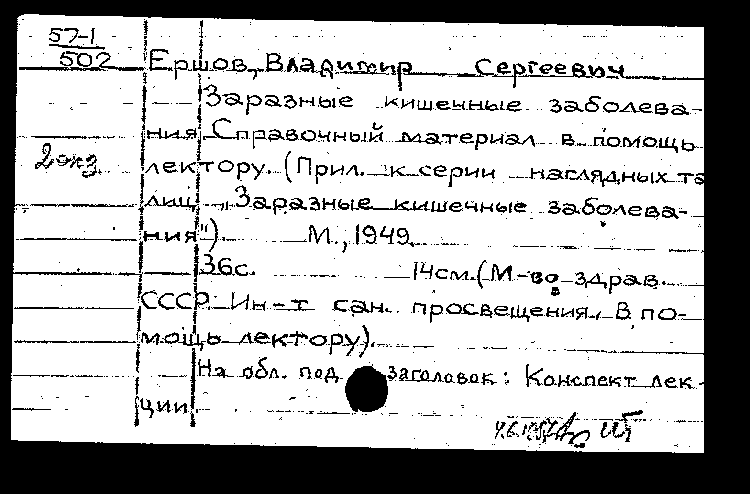 57-1
502
Ершов, Владимир Сергеевич
Заразные кишечные заболева-
ния. Справочный материал в помощь
лектору. (Прил. к серии наглядных та
лиц „Заразные кишечные заболева-
ния"). М., 1949.
2 экз.
36с. 14см. (М-во здрав.
СССР. Ин-т сан. просвещения. В по-
мощь лектору).
На обл. под заголовок: Конспект лек-
ции